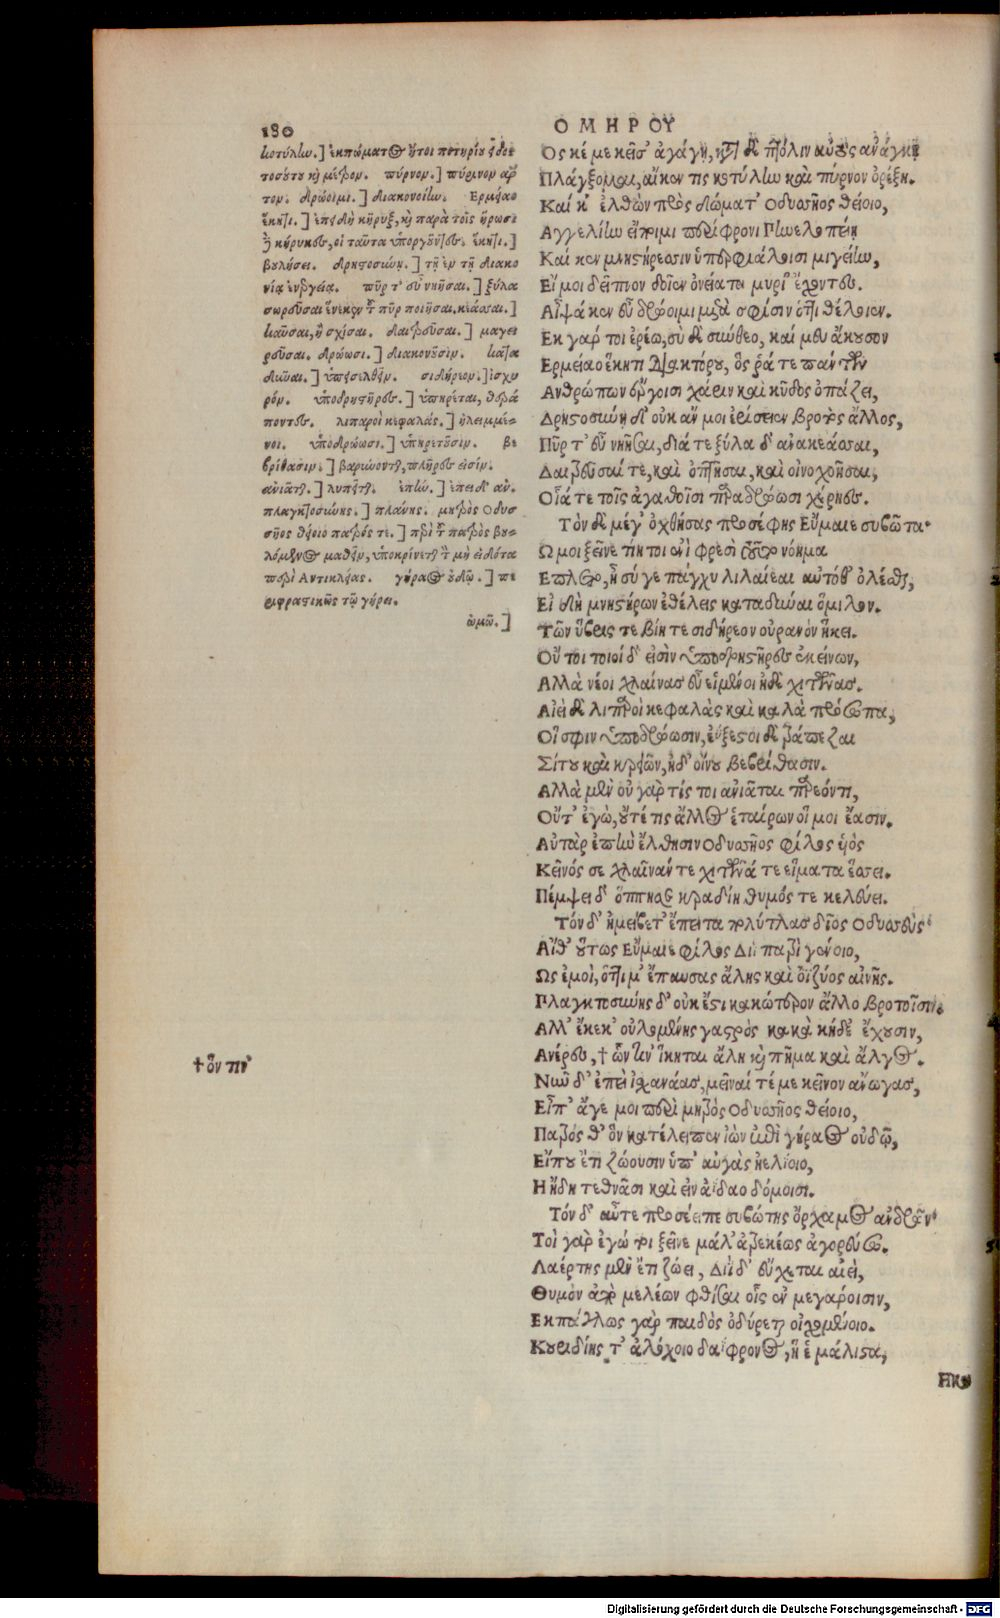 180
ΟΜΗΡΟΥ
κοτύλην.] ἐκπώματος ἤτοι ποτηρίου εἶδος
τοσοῦτο καὶ μέτρον. πύρνον.] πύρινον ἄρ
τον. δρώοιμι.] διακονοίην. Ερμείαο
ἕκητι.] ἐπειδὴ κῆρυξ, καὶ παρὰ τοῖς ἥρωσι
οἱ κήρυκες, οἱ ταῦτα ὑπουργοῦντες. ἕκητι.]
βουλήσει. δρηστοσύνῃ.] τῇ ἐν τῇ διακο
νίᾳ ἐνεργείᾳ. πῦρ τ' εὖ νηῆσαι.] ξύλα
σωρεῦσαι ἕνεκεν τοῦ πῦρ ποιῆσαι. κεάσσαι.]
καῦσαι, ἢ σχίσαι. δαιτρεῦσαι.] μαγει
ρεῦσαι. δρώωσι.] διακονοῦσιν. κατα
δῦναι.] ὑπεισελθεῖν. σιδήρεον.] ἰσχυ
ρόν. ὑποδρηστῆρες.] ὑπηρέται, θερά
ποντες. λιπαροὶ κεφαλάς.] ἠλειμμέ-
νοι. ὑποδρώωσι.] ὑπηρετοῦσιν. βε
βρίθασιν.] βαρύνονται, πλήρεις εἰσίν.
ἀνιᾶται.] λυπεῖται. ἐπὴν.] ἐπειδ' αν.
πλαγκτοσύνης.] πλάνης. μητρὸς Οδυσ
σῆος θείοιο πατρός τε.] περὶ τοῦ πατρὸς βου-
λόμενος μαθεῖν, ὑποκρίνεται τὸ μὴ εἰδότα
περὶ Αντικλείας. γήραος οὐδῷ.] πε
ριφραστικῶς τῷ γήρει.
ὠμῷ.]
Ος κέ με κεῖσ' ἀγάγῃ, κατὰ δὲ πτόλιν αὐτὸς ἀνάγκῃ
Πλάγξομαι, αἴ κεν τις κοτύλην καὶ πύρνον ὀρέξῃ.
Καί κ' ἐλθὼν πρὸς δώματ' Οδυσσῆος θείοιο,
Αγγελίην εἴποιμι περίφρονι Πηνελοπείῃ
Καί κεν μνηστήρεσσιν ὑπερφιάλοισι μιγείην,
Εἴ μοι δεῖπνον δοῖεν ὀνείατα μυρί' ἔχοντες.
Αἶψά κεν εὖ δρώοιμι μετὰ σφίσιν ὅττι θέλοιεν.
Εκ γάρ τοι ἐρέω, σὺ δὲ σύνθεο, καί μευ ἄκουσον
Ερμείαο ἕκητι Διακτόρου, ὅς ῥά τε πάντων
Ανθρώπων ἔργοισι χάριν καὶ κῦδος ὀπάζει,
Δρηστοσύνῃ δ' οὐκ ἄν μοι ἐρίσσειεν βροτὸς ἄλλος,
Πῦρ τ' εὖ νηῆσαι, διά τε ξύλα δ' ἀνακεάσσαι,
Δαιτρεῦσαί τε, καὶ ὀπτῆσαι, καὶ οἰνοχοῆσαι,
Οἷά τε τοῖς ἀγαθοῖσι παραδρώωσι χέρηες.
Τὸν δὲ μέγ' ὀχθήσας προσέφης Εὔμαιε συβῶτα·
Ω μοι ξεῖνε τίη τοι ἐνὶ φρεσὶ τοῦτο νόημα
Επλετο, ἦ σύ γε πάγχυ λιλαίεαι αὐτόθ' ὀλέσθαι,
Εἰ δὴ μνηστήρων ἐθέλεις καταδῦναι ὅμιλον.
Τῶν ὕβρις τε βίη τε σιδήρεον οὐρανὸν ἥκει.
Οὔ τοι τοιοίδ' εἰσὶν ὑποδρηστῆρες ἐκείνων,
Αλλὰ νέοι χλαίνας εὖ εἱμένοι ἠδὲ χιτῶνας.
Αἰεὶ δὲ λιπαροὶ κεφαλὰς καὶ καλὰ πρόσωπα,
Οἵ σφιν ὑποδρώωσιν, ἐΰξεστοι δὲ τράπεζαι
Σίτου καὶ κρειῶν, ἠδ' οἴνου βεβρίθασιν.
Αλλὰ μὲν οὐ γάρ τίς τοι ἀνιᾶται παρεόντι,
Οὔτ' ἐγὼ, οὔτέ τις ἄλλος ἑταίρων οἵ μοι ἔασιν.
Αὐτὰρ ἐπὴν ἔλθησιν Οδυσσῆος φίλος υἱὸς
Κεῖνός σε χλαῖνάν τε χιτῶνά τε εἵματα ἕσσει.
Πέμψει δ' ὅππη σε κραδίη θυμός τε κελεύει.
Τόν δ' ἠμείβετ' ἔπειτα πολύτλας δῖος Οδυσσεὺς·
Αἴθ' οὕτως Εὔμαιε φίλος Διῒ πατρὶ γένοιο,
Ως ἐμοὶ, ὅττι μ' ἔπαυσας ἄλης καὶ ὀϊζύος αἰνῆς.
Πλαγκτοσύνης δ' οὐκ ἔστι κακώτερον ἄλλο βροτοῖσιν.
Αλλ' ἕνεκ' οὐλομένης γαστρὸς κακὰ κήδε' ἔχουσιν,
Ανέρες, † ὧν κεν ἵκηται ἄλη καὶ πῆμα καὶ ἄλγος.
Νῦν δ' ἐπεὶ ἰσχανάας, μεῖναί τέ με κεῖνον ἄνωγας,
Εἴπ' ἄγε μοι περὶ μητρὸς Οδυσσῆος θείοιο,
Πατρός θ' ὃν κατέλειπεν ἰὼν ἐπὶ γήραος οὐδῷ,
Εἴ που ἔτι ζώουσιν ὑπ' αὐγὰς ἠελίοιο,
Η ἤδη τεθνᾶσι καὶ εἰν ἀΐδαο δόμοισι.
Τόν δ' αὖτε προσέειπε συβώτης ὄρχαμος ἀνδρῶν·
Τοὶ γὰρ ἐγώ τοι ξεῖνε μάλ' ἀτρεκέως ἀγορεύσω.
Λαέρτης μὲν ἔτι ζώει, Διῒ δ' εὔχεται αἰεὶ,
Θυμὸν ἀπὸ μελέων φθίσαι οἷς ἐν μεγάροισιν,
Εκπάγλως γὰρ παιδὸς ὀδύρεται οἰχομένοιο.
Κουριδίης τ' ἀλόχοιο δαΐφρονος, ἥ ἑ μάλιστα,
† ὅν τιν'
Ηκα
Digitalisierung gefördert durch die Deutsche Forschungsgemeinschaft - DFG